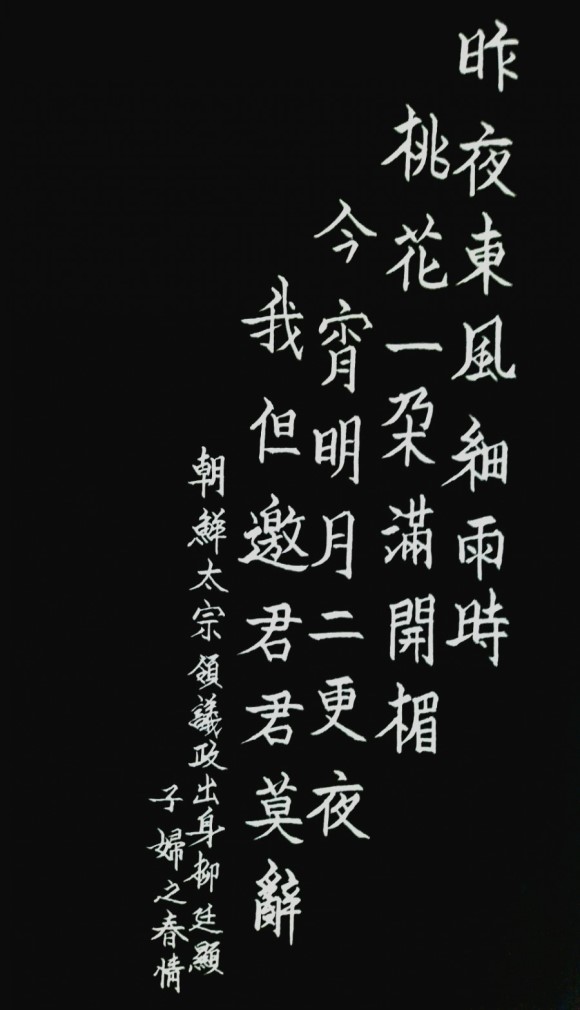 昨夜東風細雨時
桃花一朶滿開楣
今宵明月二更夜
我但邀君君莫辭
朝鮮太宗領議政出身柳廷顯
子婦之春情